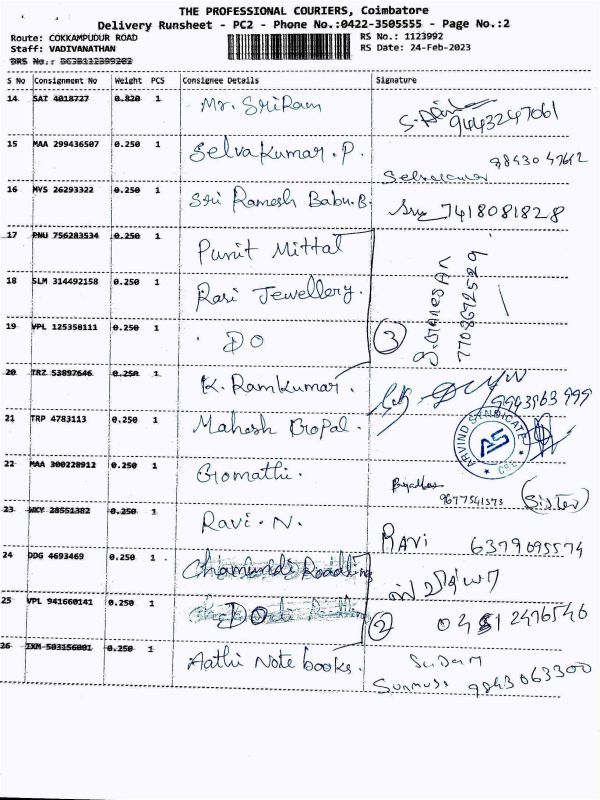 THE PROFESSIONAL COURIERS, Coimbatore
Delivery Runsheet - PC2 - Phone No.:0422-3505555 - Page No.:2
Route: COKKAMPUDUR ROAD RS No.: 1123992
Staff: VADIVANATHAN RS Date: 24-Feb-2023
DRS No.: DC3B112399202
S No Consignment No Weight PCS Consignee Details Signature
14 SAT 4018727 0.820 1 Mr. SriRam 9443247061
15 MAA 299436507 0.250 1 Selvakumar.P. 9843047642
Selvakumar
16 MYS 26293322 0.250 1 Sri Ramesh Babu.B. 7418081828
17 PNU 756283534 0.250 1 Punit Mittal
18 SLM 314492158 0.250 1 Rasi Jewellery. S.GANESAN
7708692529
19 VPL 125358111 0.250 1 DO 3
20 TRZ 53897646 0.250 1 K. Ramkumar. 9943963999
21 TRP 4783113 0.250 1 Mahesh Gopal. ARVIND SYNDICATE AS CBE
22 MAA 300228912 0.250 1 Gomathi.
9677541573 (Sister)
23 WKY 28551382 0.250 1 Ravi.N. RAVI 6379095574
24 DDG 4693469 0.250 1 Chamundi
25 VPL 941660141 0.250 1 DO 2 2476546
26 IXM 503156001 0.250 1 Aathi Note books. 9843063300